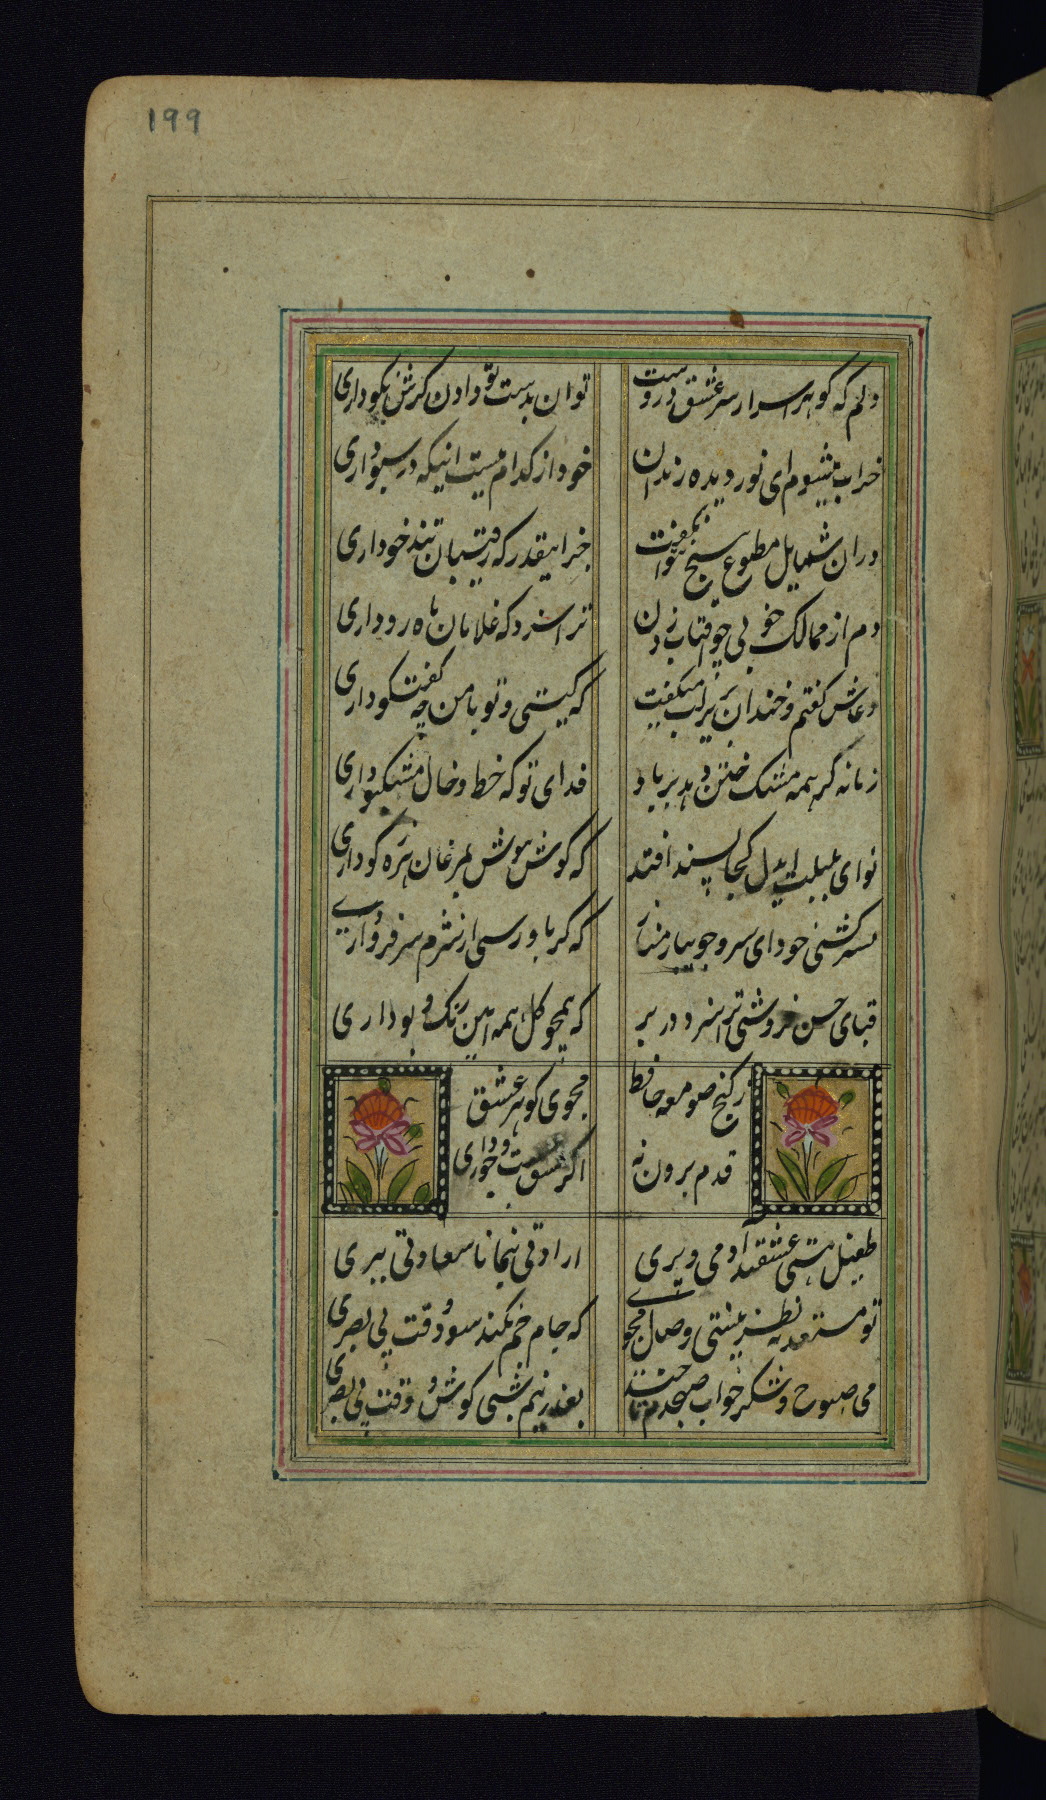 ١٩٩
دلم که کوهر اسرار سر عشق دروست توان بدست تو دادن کرش نکو داری
خراب میشوم ای نور دیده رندان خود از کدام میست اینکه در سبو داری
دران شمایل مطبوع هیچ نتوان کفت جز اینقدر که رقیبان تندخو داری
دم از ممالک خوبی چو آفتاب زدن ترا سزد که غلامان ماه رو داری
دعاش کفتم و خندان بزیر لب میکفت که کیستی و تو با من چه کفتکو داری
زمانه کر همه مشک ختن دهد بر باد فدای تو که خط و خال مشکبو داری
نوای بلبلت ای دل کجا پسند افتد که کوش هوش بمرغان هرزه کو داری
بسرکشی خود ای سرو جویبار مناز که کر باو رسی از شرم سر فرو داری
قبای حسن فروشی ترا سزد در بر که همچو کل همه آیین رنک و بو داری
ز کنج صومعه حافظ مجوی کوهر عشق
قدم برون نه اکر عشق جست و جو داری
طفیل هستی عشقند آدمی و پری ارادتی بنما تا سعادتی ببری
تو مستعد نظر نیستی وصال مجوی که جام جم نکند سود وقت بی بصری
می صبوح و شکر خواب صبحدم تا چند بعذر نیم شبی کوش و وقت بی بصری